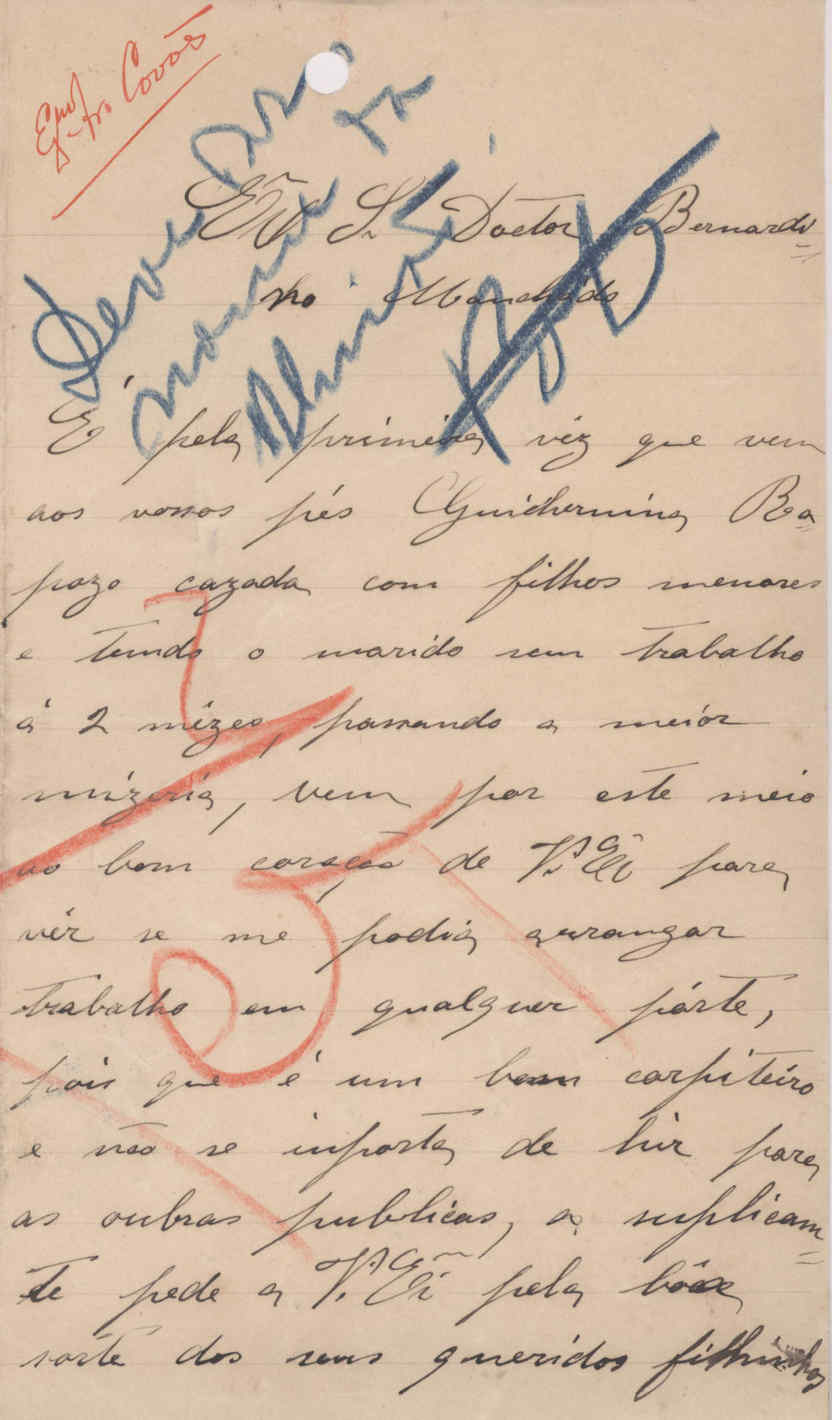 Covões
Exº Sr. Doctor Bernardi=
no Manchado
É pela primeira vêz que vem
aos vossos pés Guidhermina Ra=
pozo cazada com filhos menores
e tendo o marido sem trabalho
á 2 mêzes, passando a meiór
mizeria, vem por este meio
ao bom coração de V. Exª para
vêr se me podia arranzar
trabalho em qualquer párte,
pois que é um bom carpiteiro
e não se inporta de hir para
as oubras publicas, a suplicam=
te pede a V. Exª pela bôa
sorte dos seus queridos filhinhos